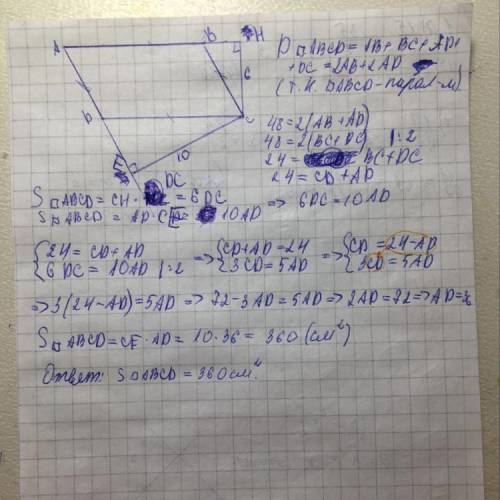 A B H
P □ ABCD = AB + BC + AD +
+ DC = 2AB + 2AD
(т.к. □ABCD - парал-м)
6
D C
E 10
48 = 2(AB + AD)
48 = 2(BC + DC) | : 2
24 = BC + DC
24 = CD + AD
S □ ABCD = CH · DC = 6 DC
S □ ABCD = AD · CE = 10AD => 6DC = 10AD
{24 = CD + AD => {CD + AD = 24 => {CD = 24 - AD
{6 DC = 10AD | : 2 {3CD = 5AD {3CD = 5AD
=> 3(24 - AD) = 5AD => 72 - 3AD = 5AD => 2AD = 72 => AD = 36
S □ ABCD = CE · AD = 10 · 36 = 360 (см²)
Ответ: S □ ABCD = 360 см².